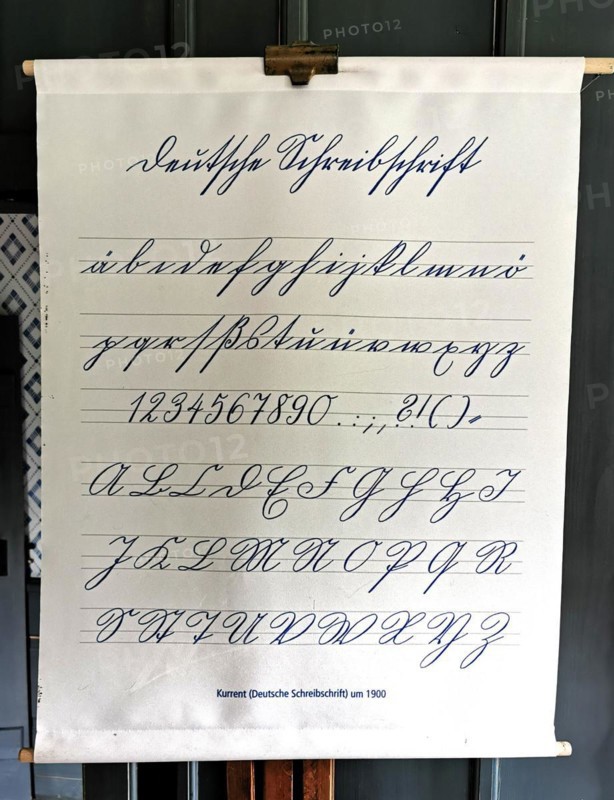 Deutsche Schreibschrift
a b c d e f g h i j k l m n o
p q r ſ ß s t u ü v w x y z
1 2 3 4 5 6 7 8 9 0 . : ; , ? ! ( ) „
A B C D E F G H I
J K L M N O P Q R
S St T U V W X Y Z
Kurrent (Deutsche Schreibschrift) um 1900
PHOTO12